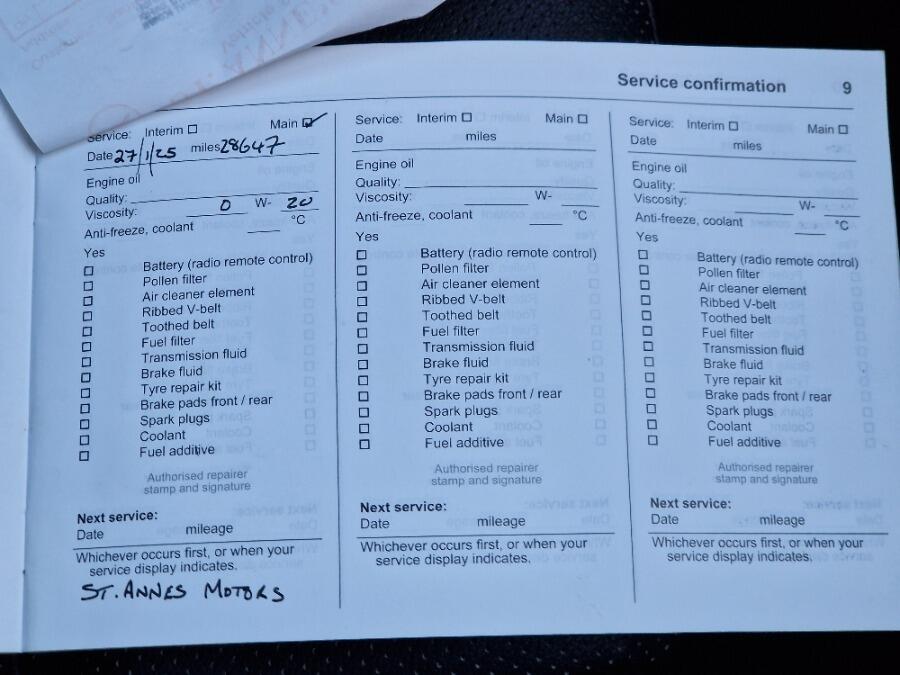 Service confirmation 9
Service: Interim ☐ Main ☑
Date 27/1/25 miles 28647
Engine oil
Quality:
Viscosity: 0 W- 20
Anti-freeze, coolant °C
Yes
☐ Battery (radio remote control)
☐ Pollen filter
☐ Air cleaner element
☐ Ribbed V-belt
☐ Toothed belt
☐ Fuel filter
☐ Transmission fluid
☐ Brake fluid
☐ Tyre repair kit
☐ Brake pads front / rear
☐ Spark plugs
☐ Coolant
☐ Fuel additive
Authorised repairer
stamp and signature
Next service:
Date mileage
Whichever occurs first, or when your
service display indicates.
ST. ANNES MOTORS
Service: Interim ☐ Main ☐
Date miles
Engine oil
Quality:
Viscosity: W-
Anti-freeze, coolant °C
Yes
☐ Battery (radio remote control)
☐ Pollen filter
☐ Air cleaner element
☐ Ribbed V-belt
☐ Toothed belt
☐ Fuel filter
☐ Transmission fluid
☐ Brake fluid
☐ Tyre repair kit
☐ Brake pads front / rear
☐ Spark plugs
☐ Coolant
☐ Fuel additive
Authorised repairer
stamp and signature
Next service:
Date mileage
Whichever occurs first, or when your
service display indicates.
Service: Interim ☐ Main ☐
Date miles
Engine oil
Quality:
Viscosity: W-
Anti-freeze, coolant °C
Yes
☐ Battery (radio remote control)
☐ Pollen filter
☐ Air cleaner element
☐ Ribbed V-belt
☐ Toothed belt
☐ Fuel filter
☐ Transmission fluid
☐ Brake fluid
☐ Tyre repair kit
☐ Brake pads front / rear
☐ Spark plugs
☐ Coolant
☐ Fuel additive
Authorised repairer
stamp and signature
Next service:
Date mileage
Whichever occurs first, or when your
service display indicates.